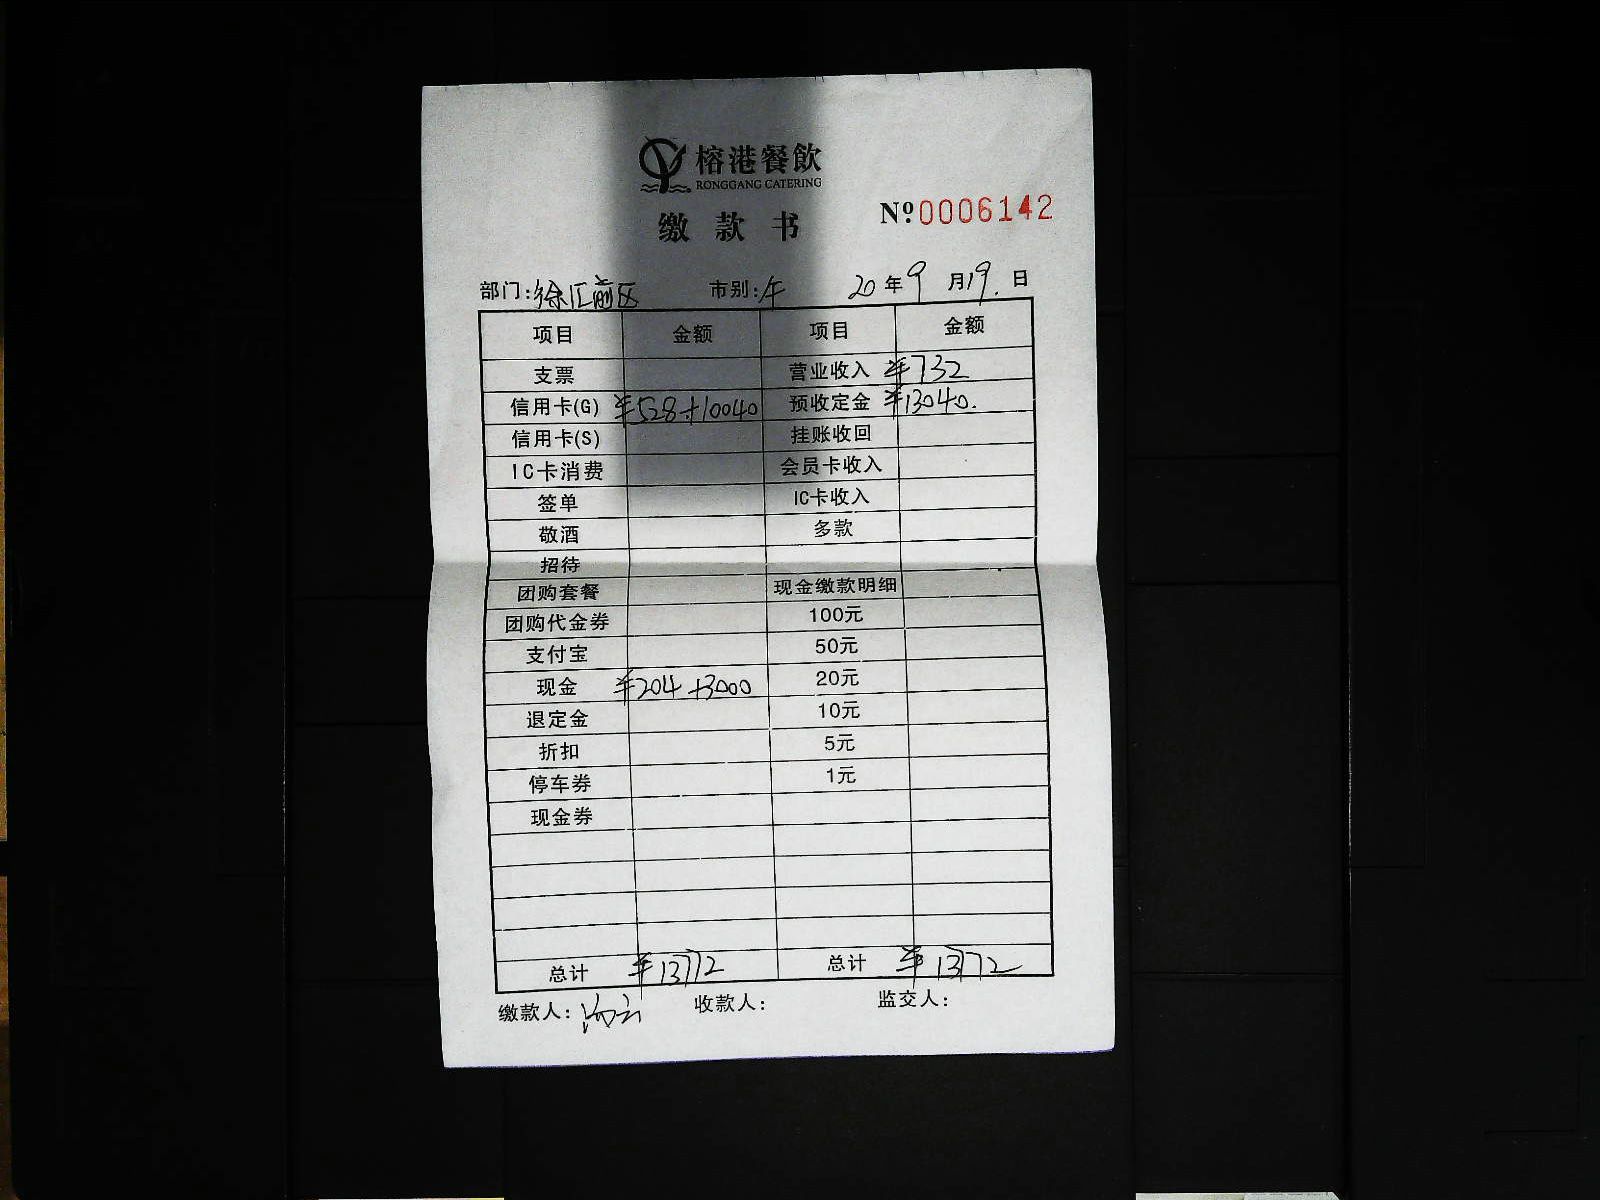 榕港餐飲
RONGGANG CATERING
缴款书
№0006142
部门:徐汇前区 市别:午 20年9月19.日
项目 金额 项目 金额
支票 营业收入 ¥732
信用卡(G) ¥528+10040 预收定金 ¥13040.
信用卡(S) 挂账收回
IC卡消费 会员卡收入
签单 IC卡收入
敬酒 多款
招待
团购套餐 现金缴款明细
团购代金券 100元
支付宝 50元
现金 ¥204+3000 20元
退定金 10元
折扣 5元
停车券 1元
现金券
总计 ¥13772 总计 ¥13772
缴款人: 收款人: 监交人: